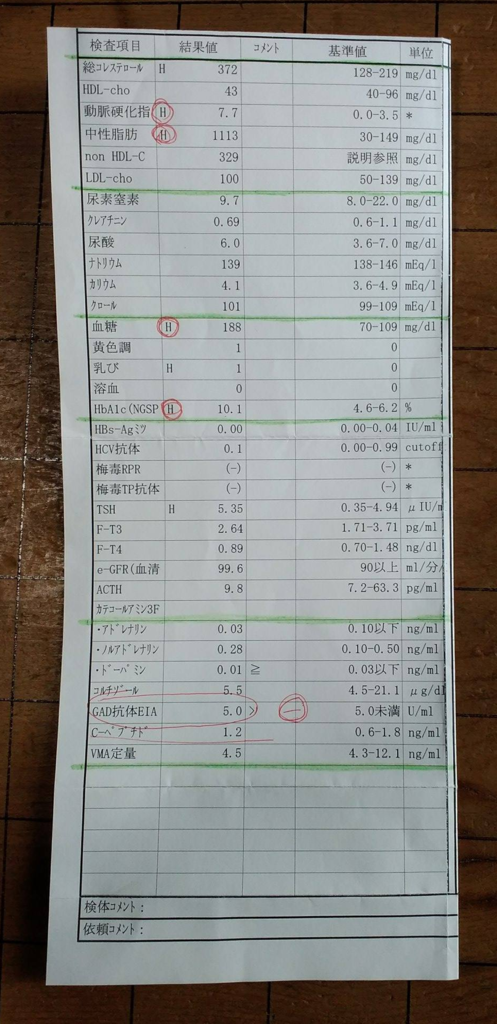 検査項目 結果値 コメント 基準値 単位
総コレステロール H 372 128-219 mg/dl
HDL-cho 43 40-96 mg/dl
動脈硬化指 H 7.7 0.0-3.5 *
中性脂肪 H 1113 30-149 mg/dl
non HDL-C 329 説明参照 mg/dl
LDL-cho 100 50-139 mg/dl
尿素窒素 9.7 8.0-22.0 mg/dl
クレアチニン 0.69 0.6-1.1 mg/dl
尿酸 6.0 3.6-7.0 mg/dl
ナトリウム 139 138-146 mEq/l
カリウム 4.1 3.6-4.9 mEq/l
クロール 101 99-109 mEq/l
血糖 H 188 70-109 mg/dl
黄色調 1 0
乳び H 1 0
溶血 0 0
HbA1c(NGSP H 10.1 4.6-6.2 %
HBs-Agミツ 0.00 0.00-0.04 IU/ml
HCV抗体 0.1 0.00-0.99 cutoff
梅毒RPR (-) (-) *
梅毒TP抗体 (-) (-) *
TSH H 5.35 0.35-4.94 μIU/m
F-T3 2.64 1.71-3.71 pg/ml
F-T4 0.89 0.70-1.48 ng/dl
e-GFR(血清 99.6 90以上 ml/分/
ACTH 9.8 7.2-63.3 pg/ml
カテコールアミン3F
・アドレナリン 0.03 0.10以下 ng/ml
・ノルアドレナリン 0.28 0.10-0.50 ng/ml
・ドーパミン 0.01 ≧ 0.03以下 ng/ml
コルチゾール 5.5 4.5-21.1 μg/dl
GAD抗体EIA 5.0 > ー 5.0未満 U/ml
C-ペプチド 1.2 0.6-1.8 ng/ml
VMA定量 4.5 4.3-12.1 ng/ml
検体コメント:
依頼コメント: